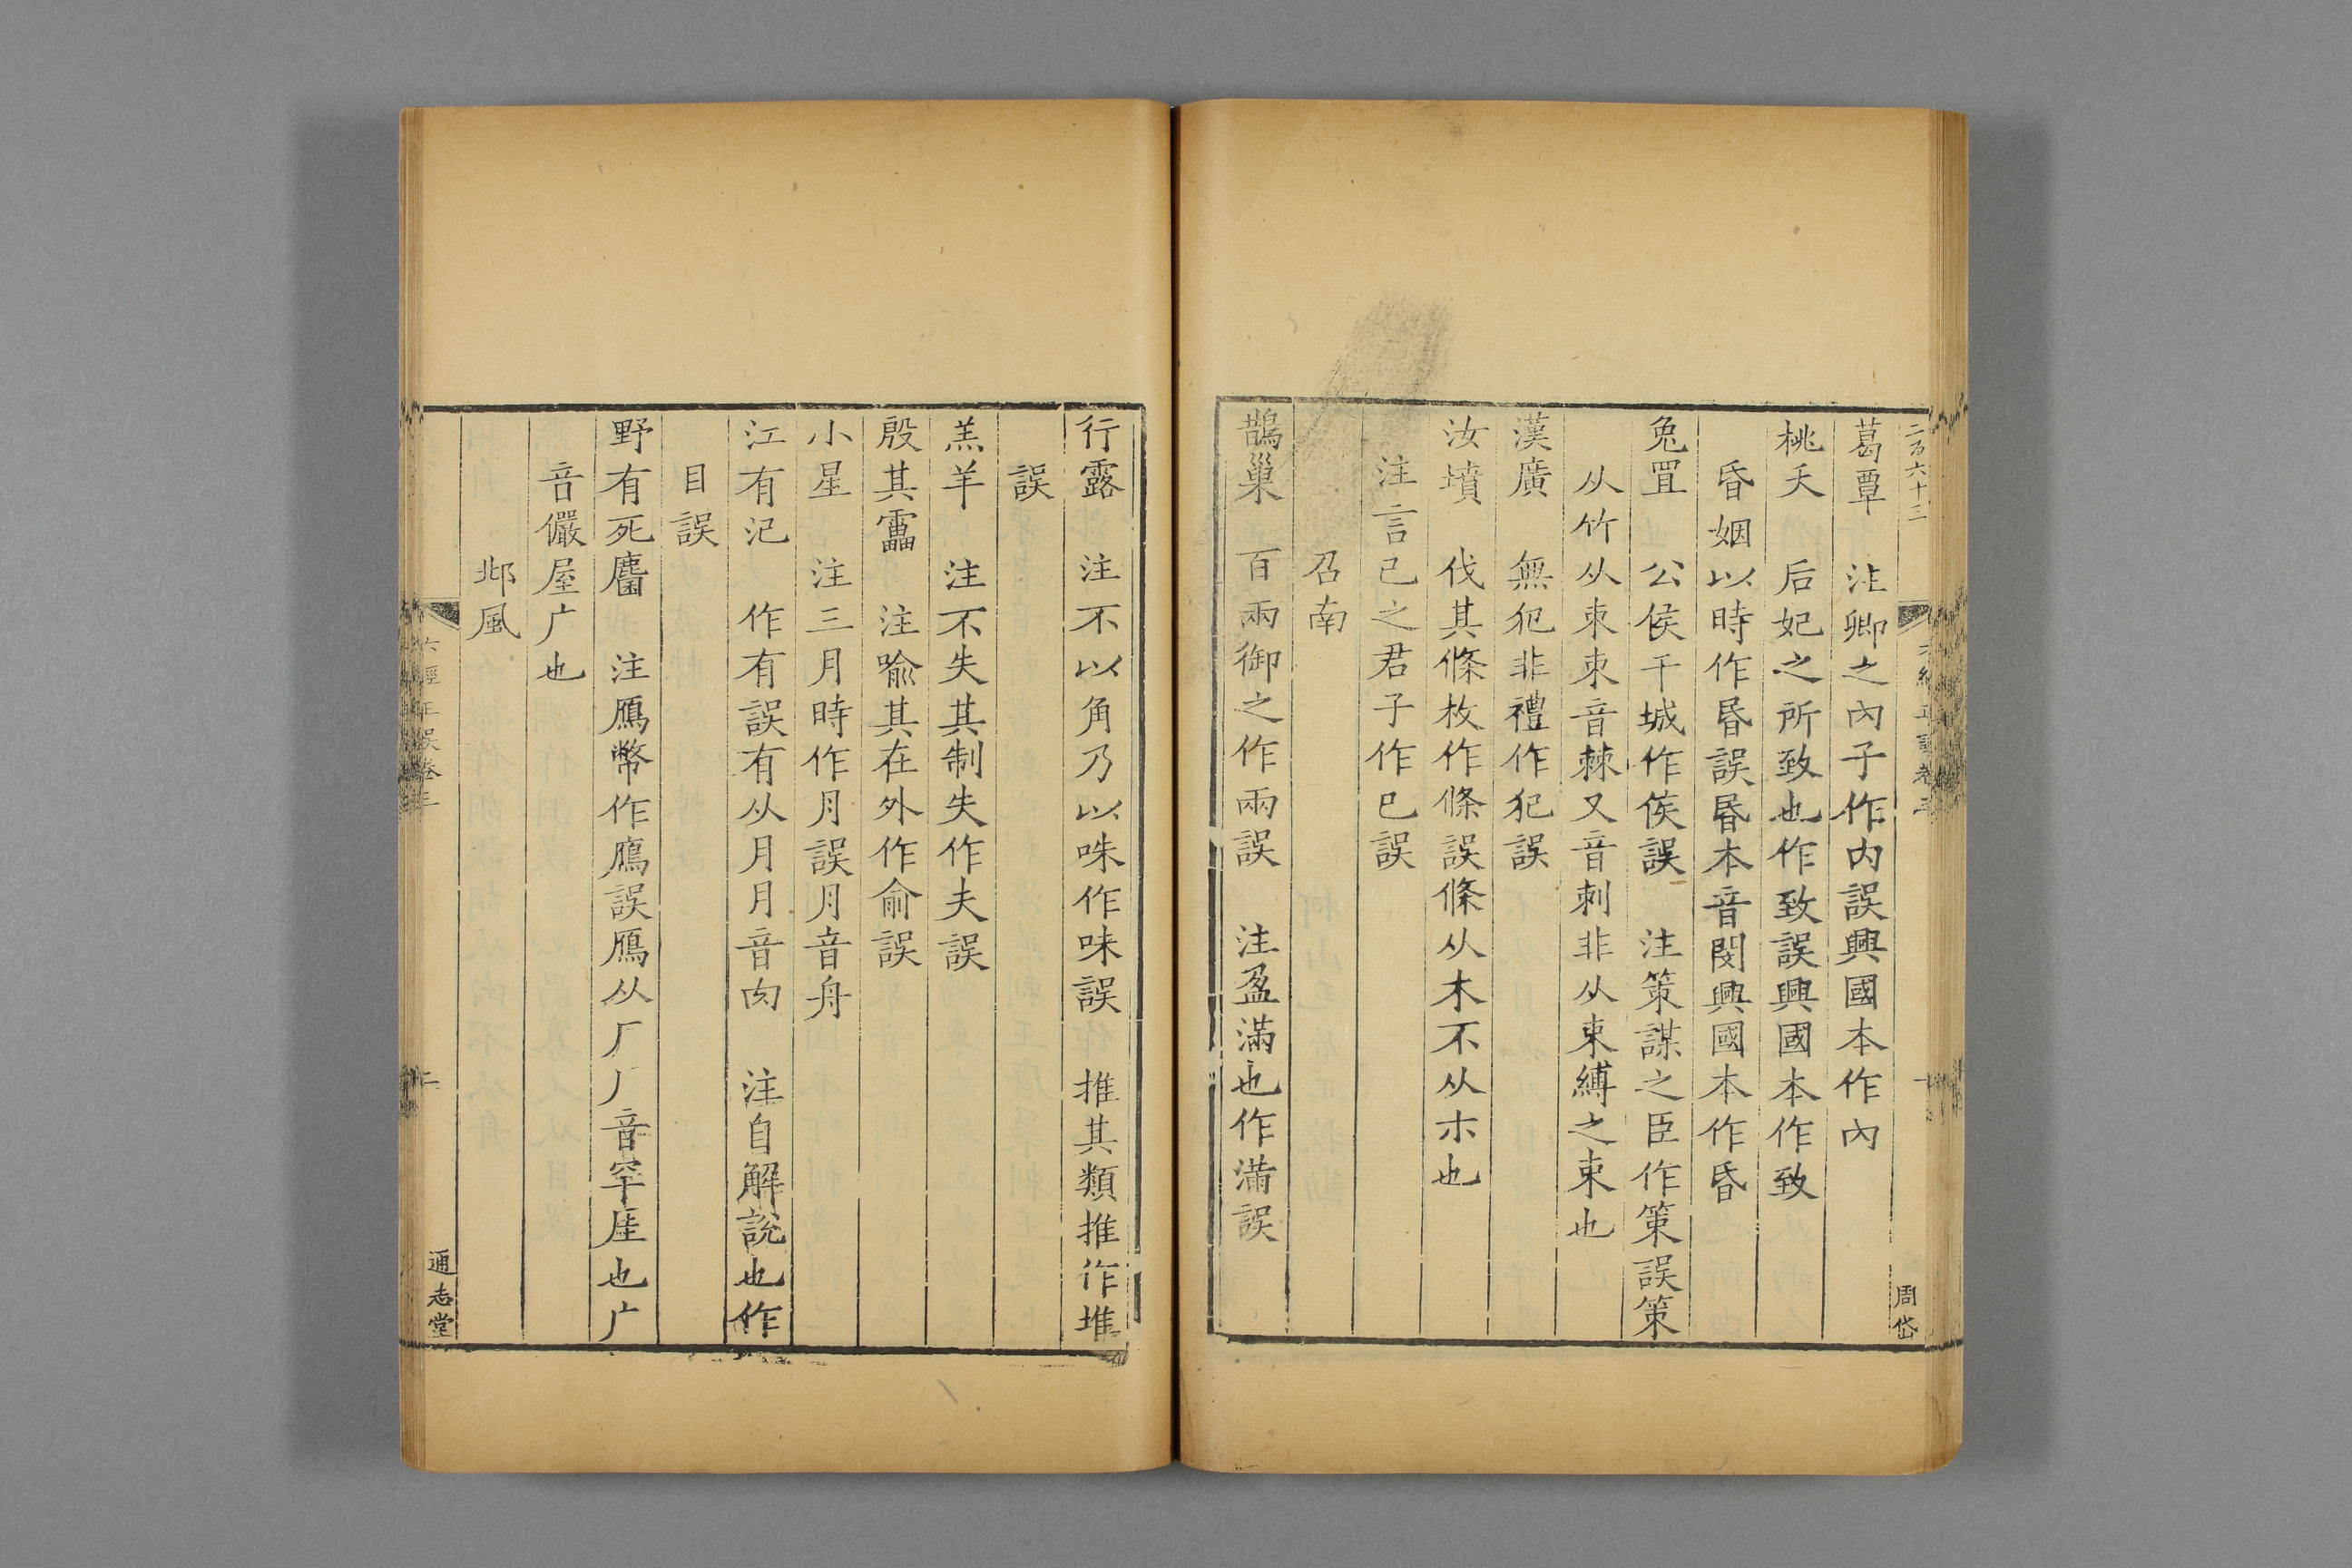 二百六十三
葛覃　注卿之內子作内誤興國本作內
桃夭　后妃之所致也作致誤興國本作致
昏姻以時作昬誤昬本音閔興國本作昏
兔罝　公侯干城作俟誤　注策謀之臣作策誤策
从竹从朿朿音棘又音刺非从束縛之束也
漢廣　無犯非禮作犯誤
汝墳　伐其條枚作條誤條从木不从朩也
注言已之君子作巳誤
召南
鵲巢　百兩御之作兩誤　注盈滿也作滿誤
周岱
行露　注不以角乃以咮作味誤　推其類推作堆
誤
羔羊　注不失其制失作夫誤
殷其靁　注喻其在外作俞誤
小星　注三月時作⺼誤⺼音舟
江有汜　作有誤有从月月音肉　注自解說也作
目誤
野有死麕　注鴈幣作鷹誤鴈从厂厂音罕厓也广
音儼屋广也
邶風
六經正誤卷三
二
通志堂